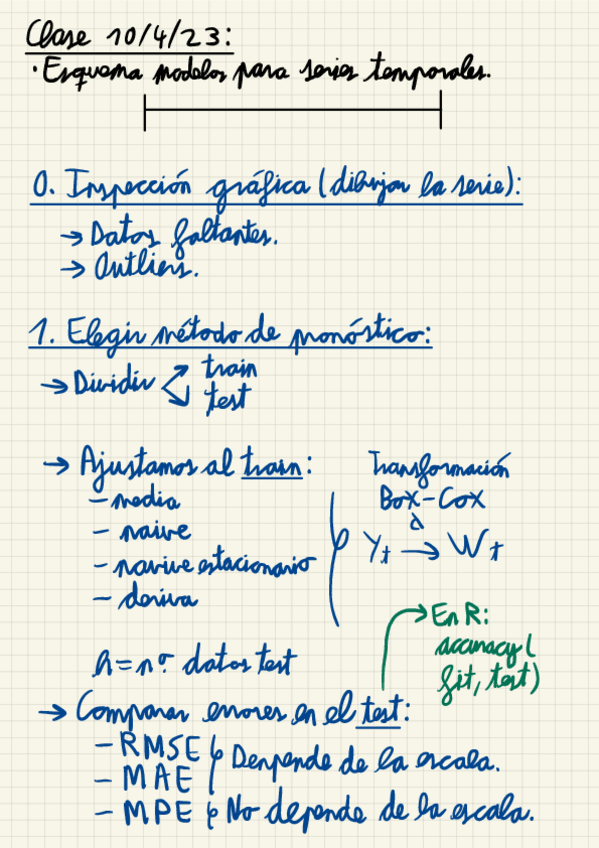 Clase 10/4/23:
· Esquema modelos para series temporales.
0. Inspección gráfica (dibujar la serie):
→ Datos faltantes.
→ Outliers.
1. Elegir método de pronóstico:
→ Dividir
train
test
→ Ajustamos al train:
- media
- naive
- navive estacionario
- deriva
Transformación
Box-Cox
λ
Yt → Wt
h = nº datos test
→ Comparar errores en el test:
→ En R:
accuracy(
fit, test)
- RMSE
- MAE
Denpende de la escala.
- MPE
No depende de la escala.